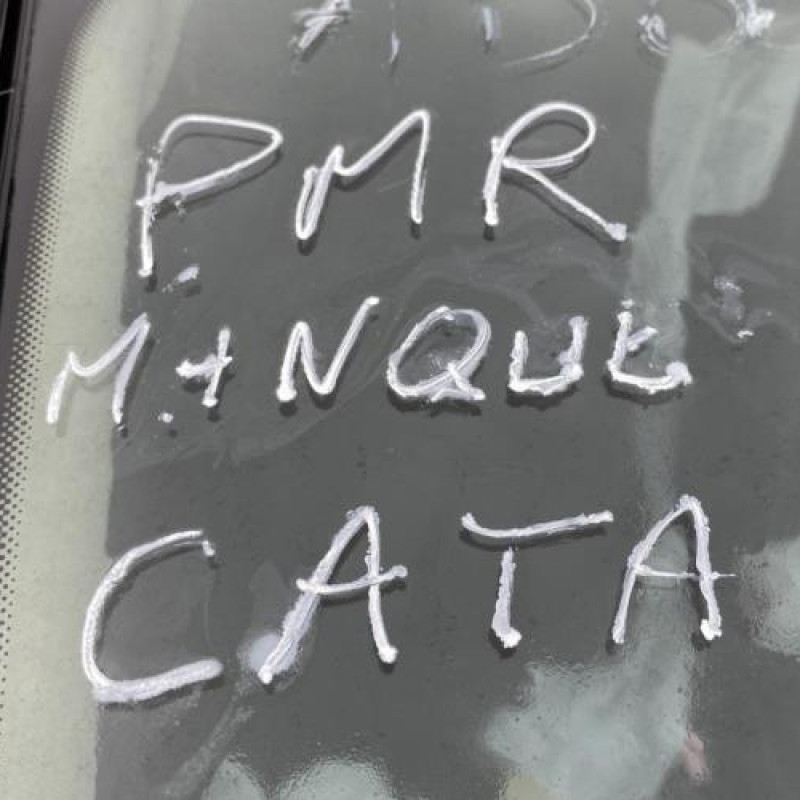 PMR
MANQUE
CATA